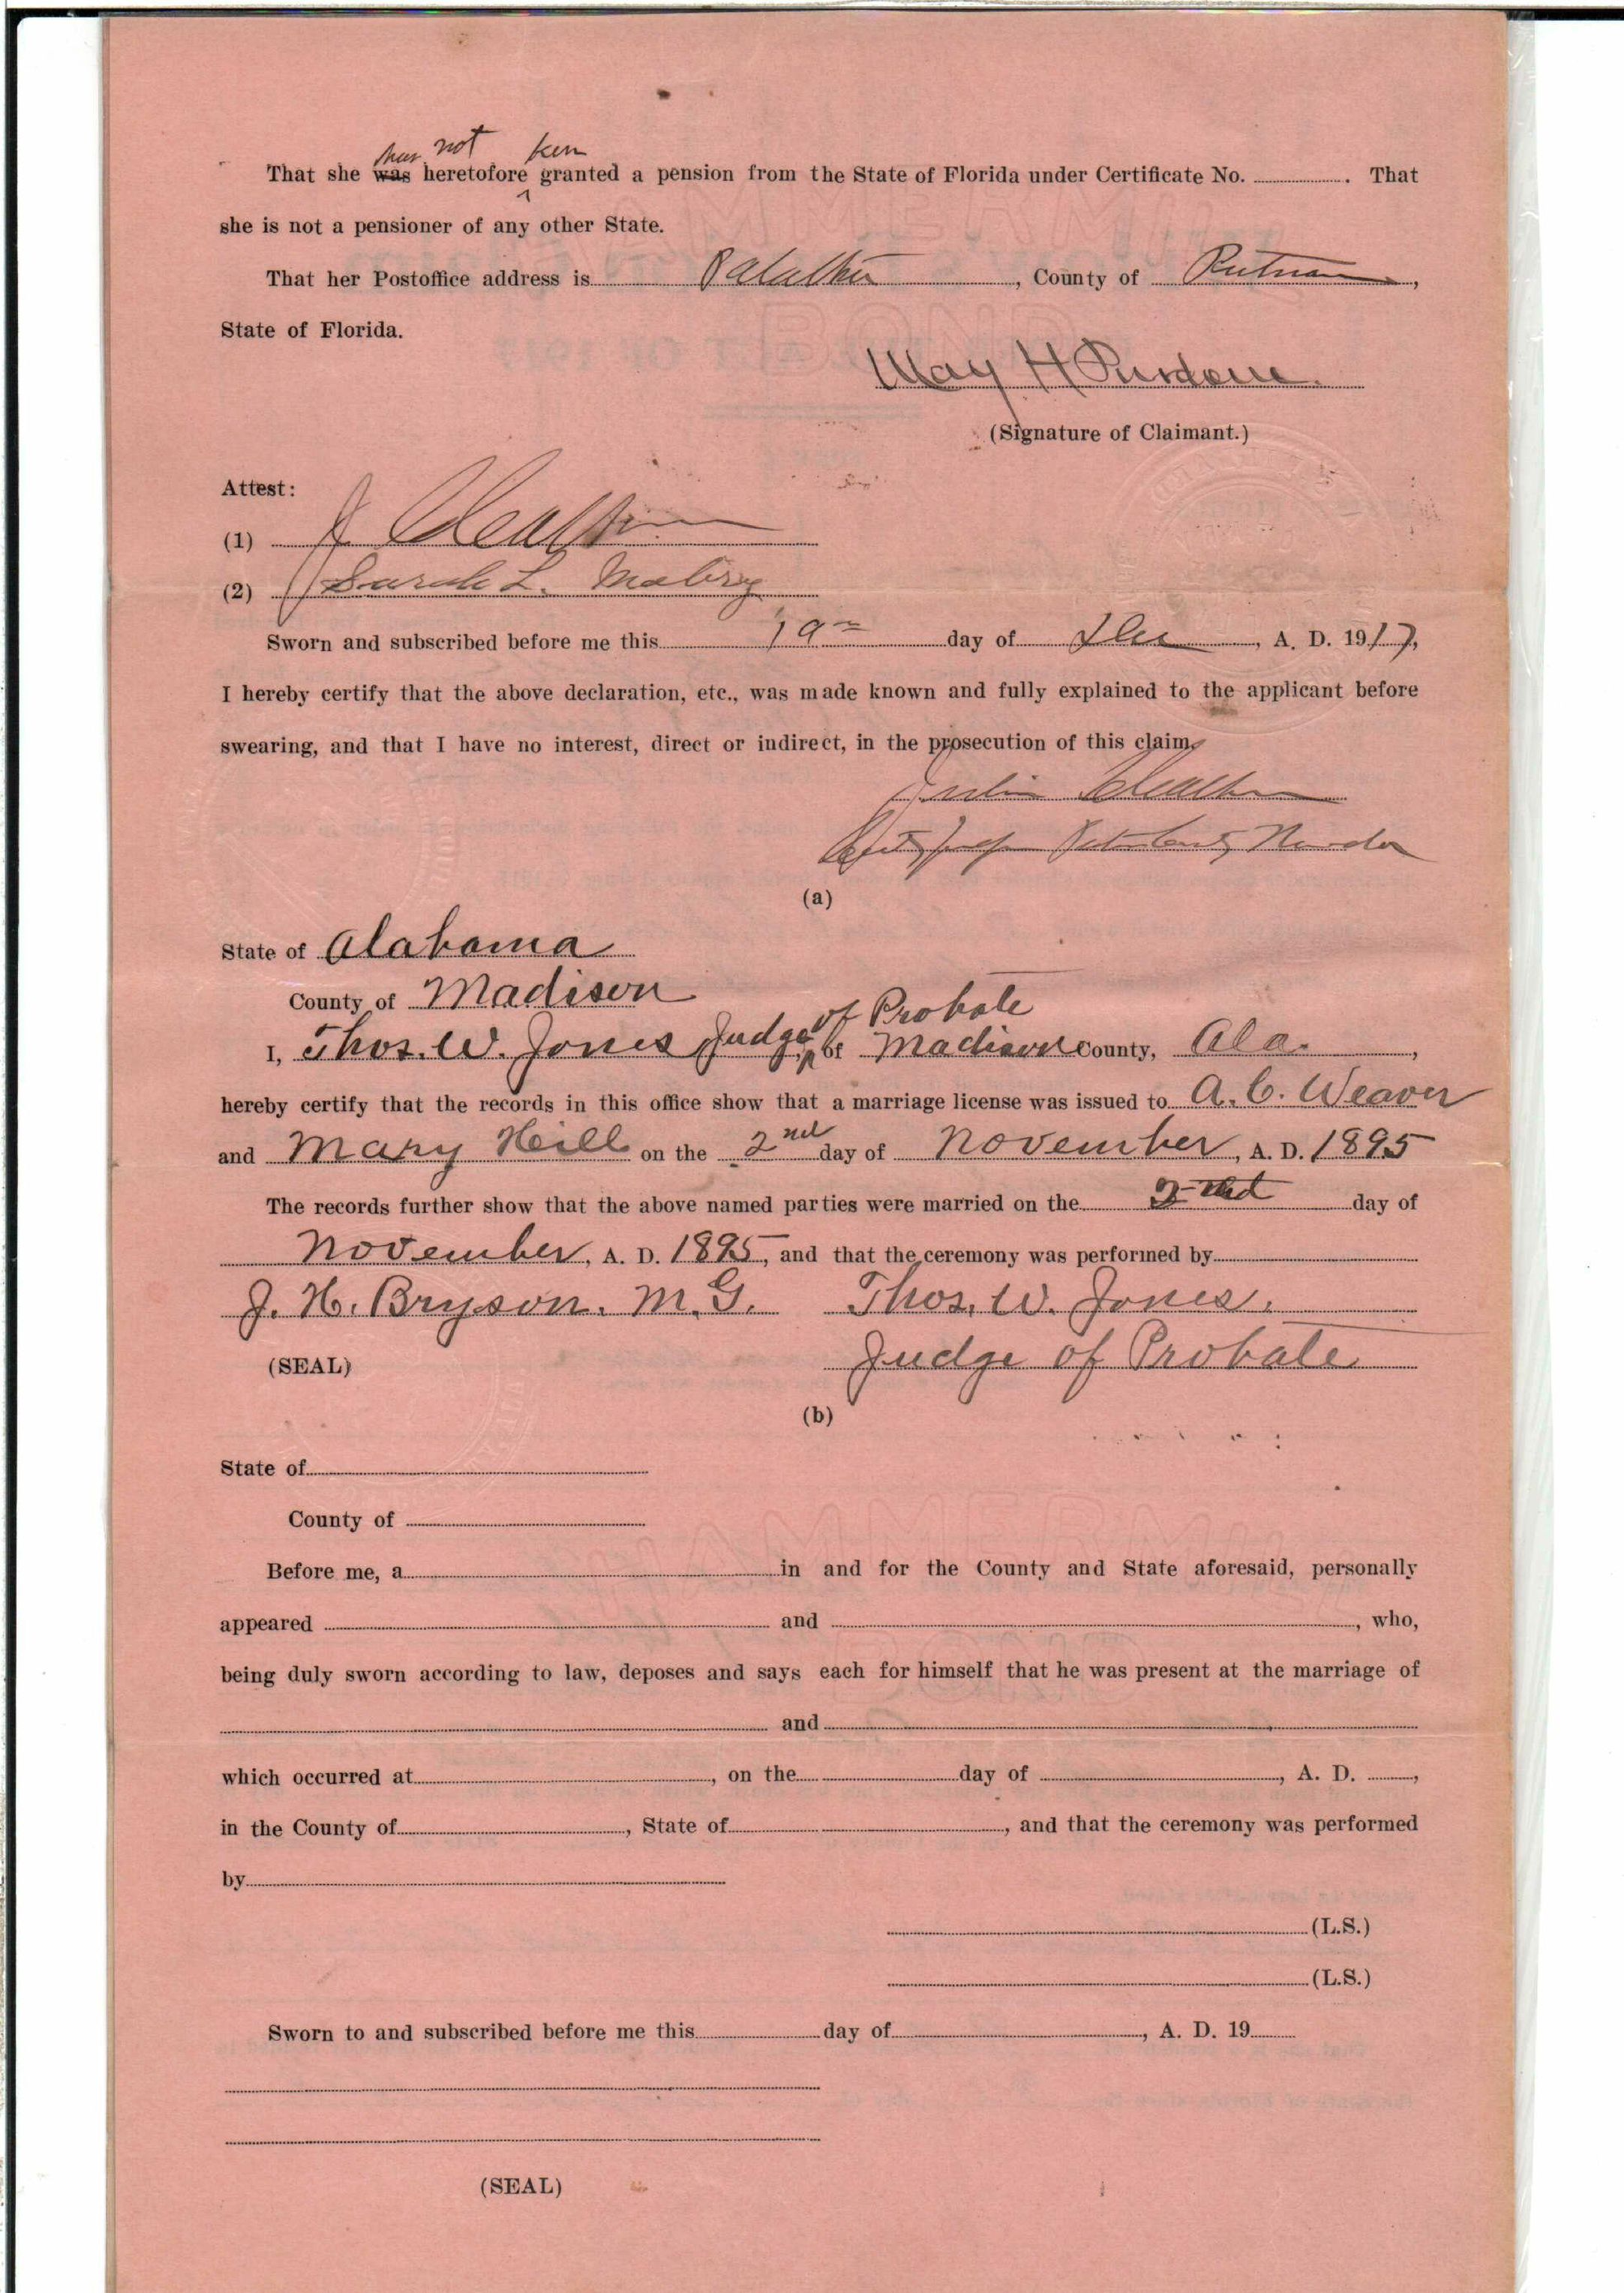 has not been
That she was heretofore granted a pension from the State of Florida under Certificate No. ........ That
she is not a pensioner of any other State.
That her Postoffice address is Palatka, County of Putnam,
State of Florida.
May H Purdom.
(Signature of Claimant.)
Attest:
(1) J
(2) Sarah L. Mabry
Sworn and subscribed before me this 19th day of Dec, A. D. 1917,
I hereby certify that the above declaration, etc., was made known and fully explained to the applicant before
swearing, and that I have no interest, direct or indirect, in the prosecution of this claim.
County Judge Putnam County Florida
(a)
State of Alabama
County of Madison
of Probate
I, Thos. W. Jones Judge of Madison County, Ala.,
hereby certify that the records in this office show that a marriage license was issued to A. C. Weaver
and Mary Heill on the 2nd day of November, A. D. 1895
The records further show that the above named parties were married on the day of
November, A. D. 1895, and that the ceremony was performed by
J. H. Bryson. M.G. Thos. W. Jones.
(SEAL) Judge of Probate
(b)
State of
County of
Before me, a in and for the County and State aforesaid, personally
appeared and , who,
being duly sworn according to law, deposes and says each for himself that he was present at the marriage of
and
which occurred at , on the day of , A. D. ,
in the County of , State of , and that the ceremony was performed
by
(L.S.)
(L.S.)
Sworn to and subscribed before me this day of , A. D. 19
(SEAL)